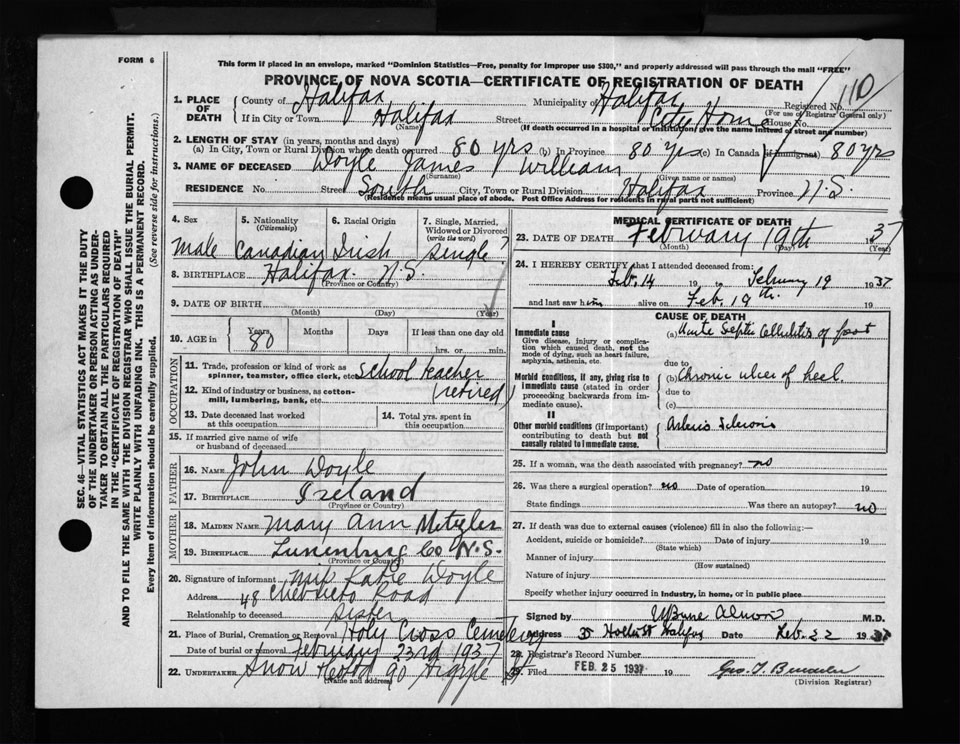 FORM 6
This form if placed in an envelope, marked "Dominion Statistics—Free, penalty for improper use $300," and properly addressed will pass through the mail "FREE"
PROVINCE OF NOVA SCOTIA—CERTIFICATE OF REGISTRATION OF DEATH
110
1. PLACE OF DEATH
County of Halifax Municipality of Halifax Registered No.
(For use of Registrar General only)
If in City or Town Halifax Street City Home House No.
(Name) (If death occurred in a hospital or institution, give the name instead of street and number)
2. LENGTH OF STAY (in years, months and days)
(a) In City, Town or Rural Division where death occurred 80 yrs (b) In Province 80 yrs (c) In Canada (if immigrant) 80 yrs
3. NAME OF DECEASED Doyle James William
(Surname) (Given name or names)
RESIDENCE No. Street South City, Town or Rural Division Halifax Province N.S.
(Residence means usual place of abode. Post Office Address for residents in rural parts not sufficient)
4. Sex 5. Nationality (Citizenship) 6. Racial Origin 7. Single, Married, Widowed or Divorced (write the word)
male Canadian Irish single
8. BIRTHPLACE Halifax. N.S.
(Province or Country)
9. DATE OF BIRTH
(Month) (Day) (Year)
10. AGE in Years Months Days If less than one day old
80 hrs. or min.
OCCUPATION
11. Trade, profession or kind of work as spinner, teamster, office clerk, etc. school teacher
12. Kind of industry or business, as cotton-mill, lumbering, bank, etc. (retired)
13. Date deceased last worked at this occupation 14. Total yrs. spent in this occupation
15. If married give name of wife or husband of deceased
FATHER
16. NAME John Doyle
17. BIRTHPLACE Ireland
(Province or Country)
MOTHER
18. MAIDEN NAME Mary Ann Metzler
19. BIRTHPLACE Lunenburg Co N.S.
(Province or Country)
20. Signature of informant Miss Katie Doyle
Address 48 Chebucto Road
Relationship to deceased sister
21. Place of Burial, Cremation or Removal Holy Cross Cemetery
Date of burial or removal February 23rd 1937
22. UNDERTAKER Snow 90 Argyle St
(Name and address)
MEDICAL CERTIFICATE OF DEATH
23. DATE OF DEATH February 19th 1937
(Month) (Day) (Year)
24. I HEREBY CERTIFY that I attended deceased from:
Feb. 14 19 to February 19 1937
and last saw him alive on Feb. 19th. 19
CAUSE OF DEATH
I
Immediate cause (a) Acute Septic Cellulitis of foot
Give disease, injury or complication which caused death, not the mode of dying, such as heart failure, asphyxia, asthenia, etc.
due to
Morbid conditions, if any, giving rise to immediate cause (stated in order proceeding backwards from immediate cause). (b) Chronic ulcer of heel.
due to
(c)
II
Other morbid conditions (if important) contributing to death but not causally related to immediate cause. Arterio Sclerosis
25. If a woman, was the death associated with pregnancy? no
26. Was there a surgical operation? no Date of operation 19
State findings Was there an autopsy? no
27. If death was due to external causes (violence) fill in also the following:—
Accident, suicide or homicide? Date of injury 19
(State which)
Manner of injury
(How sustained)
Nature of injury
Specify whether injury occurred in industry, in home, or in public place
Signed by Almon M.D.
Address 35 Hollis St Halifax Date Feb. 22 1937
28. Registrar's Record Number
Filed FEB. 25 1937 19
(Division Registrar)
SEC. 46—VITAL STATISTICS ACT MAKES IT THE DUTY
OF THE UNDERTAKER OR PERSON ACTING AS UNDER-
TAKER TO OBTAIN ALL THE PARTICULARS REQUIRED
IN THE "CERTIFICATE OF REGISTRATION OF DEATH"
AND TO FILE THE SAME WITH THE DIVISION REGISTRAR WHO SHALL ISSUE THE BURIAL PERMIT.
WRITE PLAINLY WITH UNFADING INK. THIS IS A PERMANENT RECORD.
Every item of information should be carefully supplied. (See reverse side for instructions.)